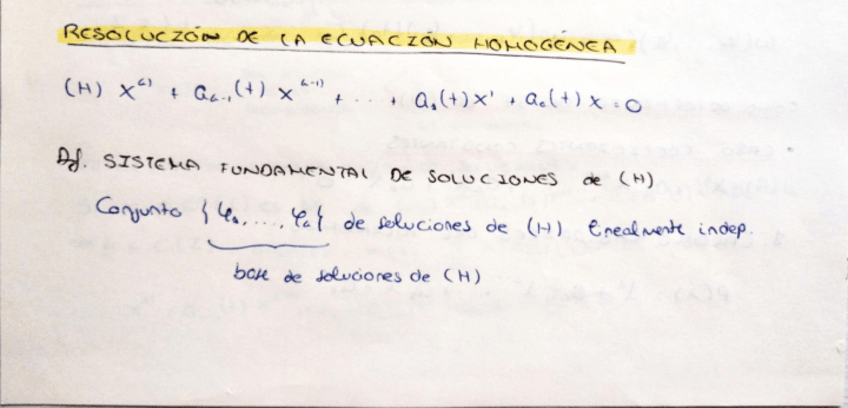 RESOLUCIÓN DE LA ECUACIÓN HOMOGÉNEA
(H) x⁽ⁿ⁾ + aₙ₋₁(t) x⁽ⁿ⁻¹⁾ + ... + a₁(t)x' + a₀(t)x = 0
Df. SISTEMA FUNDAMENTAL DE SOLUCIONES de (H)
Conjunto {φ₁, ..., φₙ} de soluciones de (H) linealmente indep.
base de soluciones de (H)